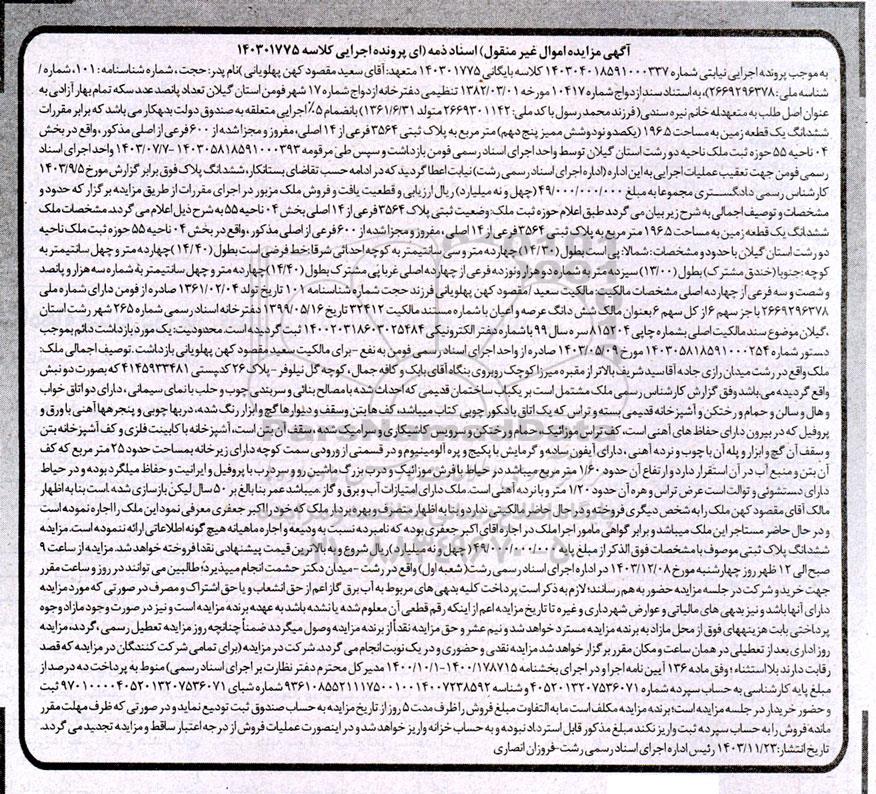 آگهی مزایده اموال غیر منقول) اسناد ذمه (ای پرونده اجرایی کلاسه ۱۴۰۳۰۱۷۷۵
به موجب پرونده اجرایی نیابتی شماره ۱۴۰۳۰۴۰۱۸۵۹۱۰۰۰۳۳۷ کلاسه بایگانی ۱۴۰۳۰۱۷۷۵ متعهد: آقای سعید مقصود کهن پهلویانی )نام پدر: حجت ، شماره شناسنامه : ۱۰۱، شماره /
شناسه ملی: ۲۶۶۹۲۹۶۳۷۸(، به استناد سند ازدواج شماره ۱۰۴۱۷ مورخه ۱۳۸۲/۰۳/۰۱ تنظیمی دفترخانه ازدواج شماره ۱۷ شهر فومن استان گیلان تعداد پانصد عدد سکه تمام بهار آزادی به
عنوان اصل طلب به متعهدله خانم نیره سندی( فرزند محمد رسول با کد ملی: ۲۶۶۹۳۰۱۱۴۲ متولد ۱۳۶۱/۶/۳۱) بانضمام ۵٪ اجرایی متعلقه به صندوق دولت بدهکار می باشد که برابر مقررات
ششدانگ یک قطعه زمین به مساحت ۱۹۶.۵ (یکصد و نود و شش ممیز پنج دهم) متر مربع به پلاک ثبتی ۳۵۶۴ فرعی از ۱۴ اصلی، مفروز و مجزا شده از ۶۰۰ فرعی از اصلی مذکور ، واقع در بخش
۰۴ ناحیه ۵۵ حوزه ثبت ملک ناحیه دو رشت استان گیلان توسط واحد اجرای اسناد رسمی فومن بازداشت و سپس طی مرقومه ۱۴۰۳۰۵۸۱۸۵۹۱۰۰۰۳۹۳ -۱۴۰۳/۰۷/۰۷ واحد اجرای اسناد
رسمی فومن جهت تعقیب عملیات اجرایی به این اداره (اداره اجرای اسناد رسمی رشت) نیابت اعطا گردید که در ادامه حسب تقاضای بستانکار، ششدانگ پلاک فوق برابر گزارش مورخ ۱۴۰۳/۹/۵
کارشناس رسمی دادگستری مجموعا به مبلغ ۴۹/۰۰۰/۰۰۰/۰۰۰ (چهل و نه میلیارد) ریال ارزیابی و قطعیت یافت و فروش ملک مزبور در اجرای مقررات از طریق مزایده برگزار که حدود و
مشخصات و توصیف اجمالی به شرح زیر بیان می گردد طبق اعلام حوزه ثبت ملک: وضعیت ثبتی پلاک ۳۵۶۴ فرعی از ۱۴ اصلی بخش ۰۴ ناحیه ۵۵ به شرح ذیل اعلام می گردد. مشخصات ملک
ششدانگ یک قطعه زمین به مساحت ۱۹۶.۵ متر مربع به پلاک ثبتی ۳۵۶۴ فرعی از ۱۴ اصلی ، مفروز و مجزا شده از ۶۰۰ فرعی از اصلی مذکور ، واقع در بخش ۰۴ ناحیه ۵۵ حوزه ثبت ملک ناحیه
دو رشت استان گیلان با حدود و مشخصات: شمالا: پی است بطول (۱۴/۳۰) چهارده متر و سی سانتیمتر به کوچه احداثی شرقا: خط فرضی است بطول (۱۴/۴۰) چهارده متر و چهل سانتیمتر به
کوچه: جنوبا (خندق مشترک) بطول (۱۳/۰۰) سیزده متر به شماره دو هزار و نوزده فرعی از چهارده اصلی غربا پی مشترک بطول (۱۴/۴۰) چهارده متر و چهل سانتیمتر به شماره سه هزار و پانصد
و شصت و سه فرعی از چهارده اصلی مشخصات مالکیت: مالکیت سعید / مقصود کهن پهلویانی فرزند حجت شماره شناسنامه ۱۰۱ تاریخ تولد ۱۳۶۱/۰۲/۰۴ صادره از فومن دارای شماره ملی
۲۶۶۹۲۹۶۳۷۸ با جز سهم ۶ از کل سهم ۶ بعنوان مالک شش دانگ عرصه و اعیان با شماره مستند مالکیت ۳۲۴۱۲ تاریخ ۱۳۹۹/۰۵/۱۶ دفترخانه اسناد رسمی شماره ۲۶۵ شهر رشت استان
، گیلان موضوع سند مالکیت اصلی بشماره چاپی ۸۱۵۲۰۴ سری سال ۹۹ با شماره دفتر الکترونیکی ۱۴۰۰۲۰۳۱۸۶۰۳۰۲۵۴۸۴ ثبت گردیده است. محدودیت: یک مورد بازداشت دائم بموجب
دستور شماره ۱۴۰۳۰۵۸۱۸۵۹۱۰۰۰۲۵۴ مورخ ۱۴۰۳/۰۵/۰۹ صادره از واحد اجرای اسناد رسمی فومن به نفع - برای مالکیت سعید مقصود کهن پهلویانی بازداشت. توصیف اجمالی ملک:
ملک واقع در رشت میدان رازی جاده آقا سید شریف بالاتر از مقبره میرزا کوچک روبروی بنگاه آقای بابک و کافه جمال، کوچه گل نیلوفر - پلاک ۲۶ کدپستی ۴۱۴۵۹۳۳۴۸۱ که بصورت دو نبش
واقع گردیده می باشد وفق گزارش کارشناس رسمی ملک مشتمل است بر یکباب ساختمان قدیمی که احداث شده با مصالح بنائی و سربندی چوب و حلب با نمای سیمانی ، دارای دو اتاق خواب
و هال و سالن و حمام و رختکن و آشپزخانه قدیمی بسته و تراس که یک اتاق با دکور چوبی کتاب میباشد، کف ها بتن و سقف و دیوارها گچ و ابزار رنگ شده، درها چوبی و پنجره ها آهنی با ورق و
پروفیل که در بیرون دارای حفاظ های آهنی است، کف تراس موزائیک، حمام و رختکن و سرویس کاشیکاری و سرامیک شده، سقف آن بتن است، آشپزخانه با کابینت فلزی و کف آشپزخانه بتن
و سقف آن گچ و ابزار و پله آن با چوب و نرده آهنی ، دارای آیفون ساده و گرمایش با پکیج و پره آلومینیوم و در قسمتی از ورودی سمت کوچه دارای زیرخانه بمساحت حدود ۲۵ متر مربع که کف
آن بتن و منبع آب در آن استقرار دارد و ارتفاع آن حدود ۱/۶۰ متر مربع میباشد در حیاط با فرش موزائیک و درب بزرگ ماشین رو و سردرب با پروفیل و ایرانیت و حفاظ میلگرد بوده و در حیاط
دارای دستشوئی و توالت است عرض تراس و هره آن حدود ۱/۲۰ متر و با نرده آهنی است. ملک دارای امتیازات آب و برق و گاز .میباشد عمر بنا بالغ بر ۵۰ سال لیکن بازسازی شده .است بنا به اظهار
مالک آقای مقصود کهن ملک را به شخص دیگری فروخته و در حال حاضر مالکیتی ندارد و بنا به اظهار متصرف و بهره بردار ملک که خود را اکبر جعفری معرفی نمود این ملک را اجاره نموده است
و در حال حاضر مستاجر این ملک میباشد و برابر گواهی مامور اجرا ملک در اجاره آقای اکبر جعفری بوده که نامبرده نسبت به ودیعه و اجاره ماهیانه هیچ گونه اطلاعاتی ارائه ننموده است. مزایده
ششدانگ پلاک ثبتی موصوف با مشخصات فوق الذکر از مبلغ پایه ۴۹/۰۰۰/۰۰۰/۰۰۰ (چهل و نه میلیارد) ریال شروع و به بالاترین قیمت پیشنهادی نقدا فروخته خواهد شد. مزایده از ساعت ۹
صبح الی ۱۲ ظهر روز چهارشنبه مورخ ۱۴۰۳/۱۲/۰۸ در اداره اجرای اسناد رسمی رشت (شعبه اول) واقع در رشت - میدان دکتر حشمت انجام میپذیرد؛ طالبین می توانند در روز و ساعت مقرر
جهت خرید و شرکت در جلسه مزایده حضور به هم رسانند؛ لازم به ذکر است پرداخت کلیه بدهی های مربوط به آب برق گاز اعم از حق انشعاب و یا حق اشتراک و مصرف در صورتی که مورد مزایده
دارای آنها باشد و نیز بدهی های مالیاتی و عوارض شهرداری و غیره تا تاریخ مزایده اعم از اینکه رقم قطعی آن معلوم شده یا نشده باشد به عهده برنده مزایده است و نیز در صورت وجود مازاد وجوه
پرداختی بابت هزینههای فوق از محل مازاد به برنده مزایده مسترد خواهد شد و نیم عشر و حق مزایده نقداً از برنده مزایده وصول میگردد ضمناً چنانچه روز مزایده تعطیل رسمی ، گردد، مزایده
روز اداری بعد از تعطیلی در همان ساعت و مکان مقرر برگزار خواهد شد مزایده نقدی و حضوری و در یک نوبت انجام می گردد. شرکت در مزایده (برای تمامی شرکت کنندگان در مزایده که قصد
رقابت دارند بلااستثناء ؛ وفق ماده ۱۳۶ آیین نامه اجرا و در اجرای بخشنامه ۱۴۰۰/۱۷۸۷۱۵-۱۴۰۰/۱۰/۱ مدیر کل محترم دفتر نظارت بر اجرای اسناد رسمی) منوط به پرداخت ده درصد از
مبلغ پایه کارشناسی به حساب سپرده شماره ۴۰۵۲۰۱۳۲۰۷۵۳۶۰۷۱ و شناسه ۹۳۶۱۰۸۵۵۲۱۱۱۷۵۰۰۱۰۰۱۴۰۰۷۲۳۸۵۹۲ شماره شبای ۹۷۰۱۰۰۰۰۴۰۵۲۰۱۳۲۰۷۵۳۶۰۷۱ ثبت
و حضور خریدار در جلسه مزایده است؛ برنده مزایده مکلف است ما به التفاوت مبلغ فروش را ظرف مدت ۵ روز از تاریخ مزایده به حساب صندوق ثبت تودیع نماید و در صورتی که ظرف مهلت مقرر
مانده فروش را به حساب سپرده ثبت واریز نکند مبلغ مذکور قابل استرداد نبوده و به حساب خزانه واریز خواهد شد و در اینصورت عملیات فروش از درجه اعتبار ساقط و مزایده تجدید می گردد.
تاریخ انتشار: ۱۴۰۳/۱۱/۲۳ رئیس اداره اجرای اسناد رسمی رشت- فروزان انصاری
ParsNamadData